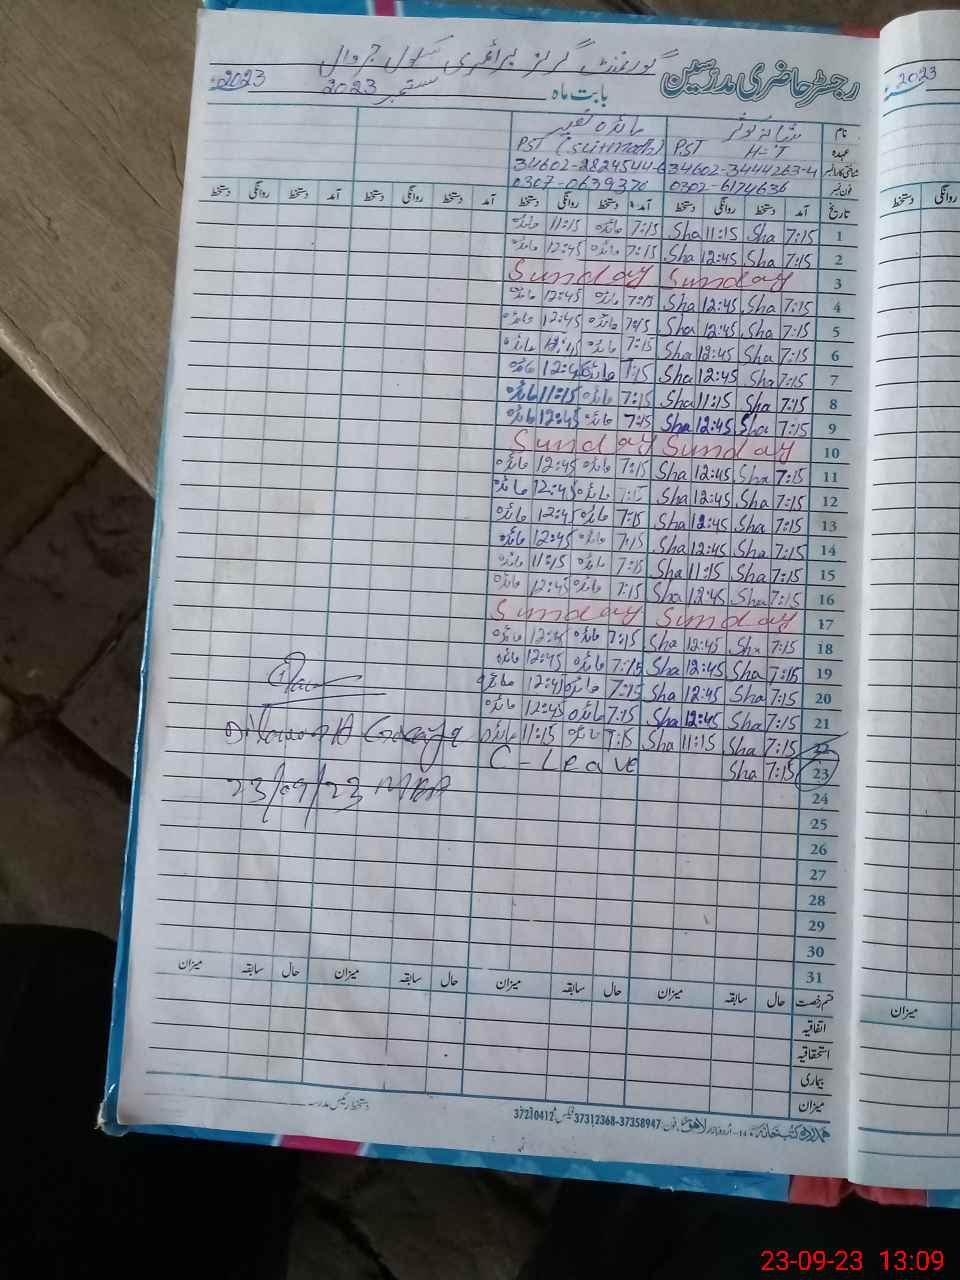 گورنمنٹ گرلز پرائمری سکول
رجسٹر حاضری مدرسین بابت ماہ ستمبر 2023 2023
نام
عہدہ PST H-T PST (sci+math)
شناختی کارڈ نمبر 34602-3444263-4 34602-2824544-6
فون نمبر 0302-6174636 0307-0639370
تاریخ آمد دستخط روانگی دستخط آمد دستخط روانگی دستخط آمد دستخط روانگی دستخط آمد دستخط روانگی دستخط
1 7:15 Sha 11:15 Sha 7:15 مائرہ 11:15 مائرہ
2 7:15 Sha 12:45 Sha 7:15 مائرہ 12:45 مائرہ
3 Sunday Sunday
4 7:15 Sha 12:45 Sha 7:15 مائرہ 12:45 مائرہ
5 7:15 Sha 12:45 Sha 7:15 مائرہ 12:45 مائرہ
6 7:15 Sha 12:45 Sha 7:15 مائرہ 12:45 مائرہ
7 7:15 Sha 12:45 Sha 7:15 مائرہ 12:45 مائرہ
8 7:15 Sha 11:15 Sha 7:15 مائرہ 11:15 مائرہ
9 7:15 Sha 12:45 Sha 7:15 مائرہ 12:45 مائرہ
10 Sunday Sunday
11 7:15 Sha 12:45 Sha 7:15 مائرہ 12:45 مائرہ
12 7:15 Sha 12:45 Sha 7:15 مائرہ 12:45 مائرہ
13 7:15 Sha 12:45 Sha 7:15 مائرہ 12:45 مائرہ
14 7:15 Sha 12:45 Sha 7:15 مائرہ 12:45 مائرہ
15 7:15 Sha 11:15 Sha 7:15 مائرہ 11:15 مائرہ
16 7:15 Sha 12:45 Sha 7:15 مائرہ 12:45 مائرہ
17 Sunday Sunday
18 7:15 Sha 12:45 Sha 7:15 مائرہ 12:45 مائرہ
19 7:15 Sha 12:45 Sha 7:15 مائرہ 12:45 مائرہ
20 7:15 Sha 12:45 Sha 7:15 مائرہ 12:45 مائرہ
21 7:15 Sha 12:45 Sha 7:15 مائرہ 12:45 مائرہ
22 7:15 Sha 11:15 Sha 7:15 مائرہ 11:15 مائرہ
23 7:15 Sha C-Leave
23/09/23 MEA
24
25
26
27
28
29
30
31
قسم رخصت حال سابقہ میزان حال سابقہ میزان حال سابقہ میزان حال سابقہ میزان
اتفاقیہ
استحقاقیہ
بیماری
میزان
دستخط رئیس مدرسہ
فون 37312368-37358947 فیکس 37210412
2023
روانگی دستخط
میزان
23-09-23 13:09